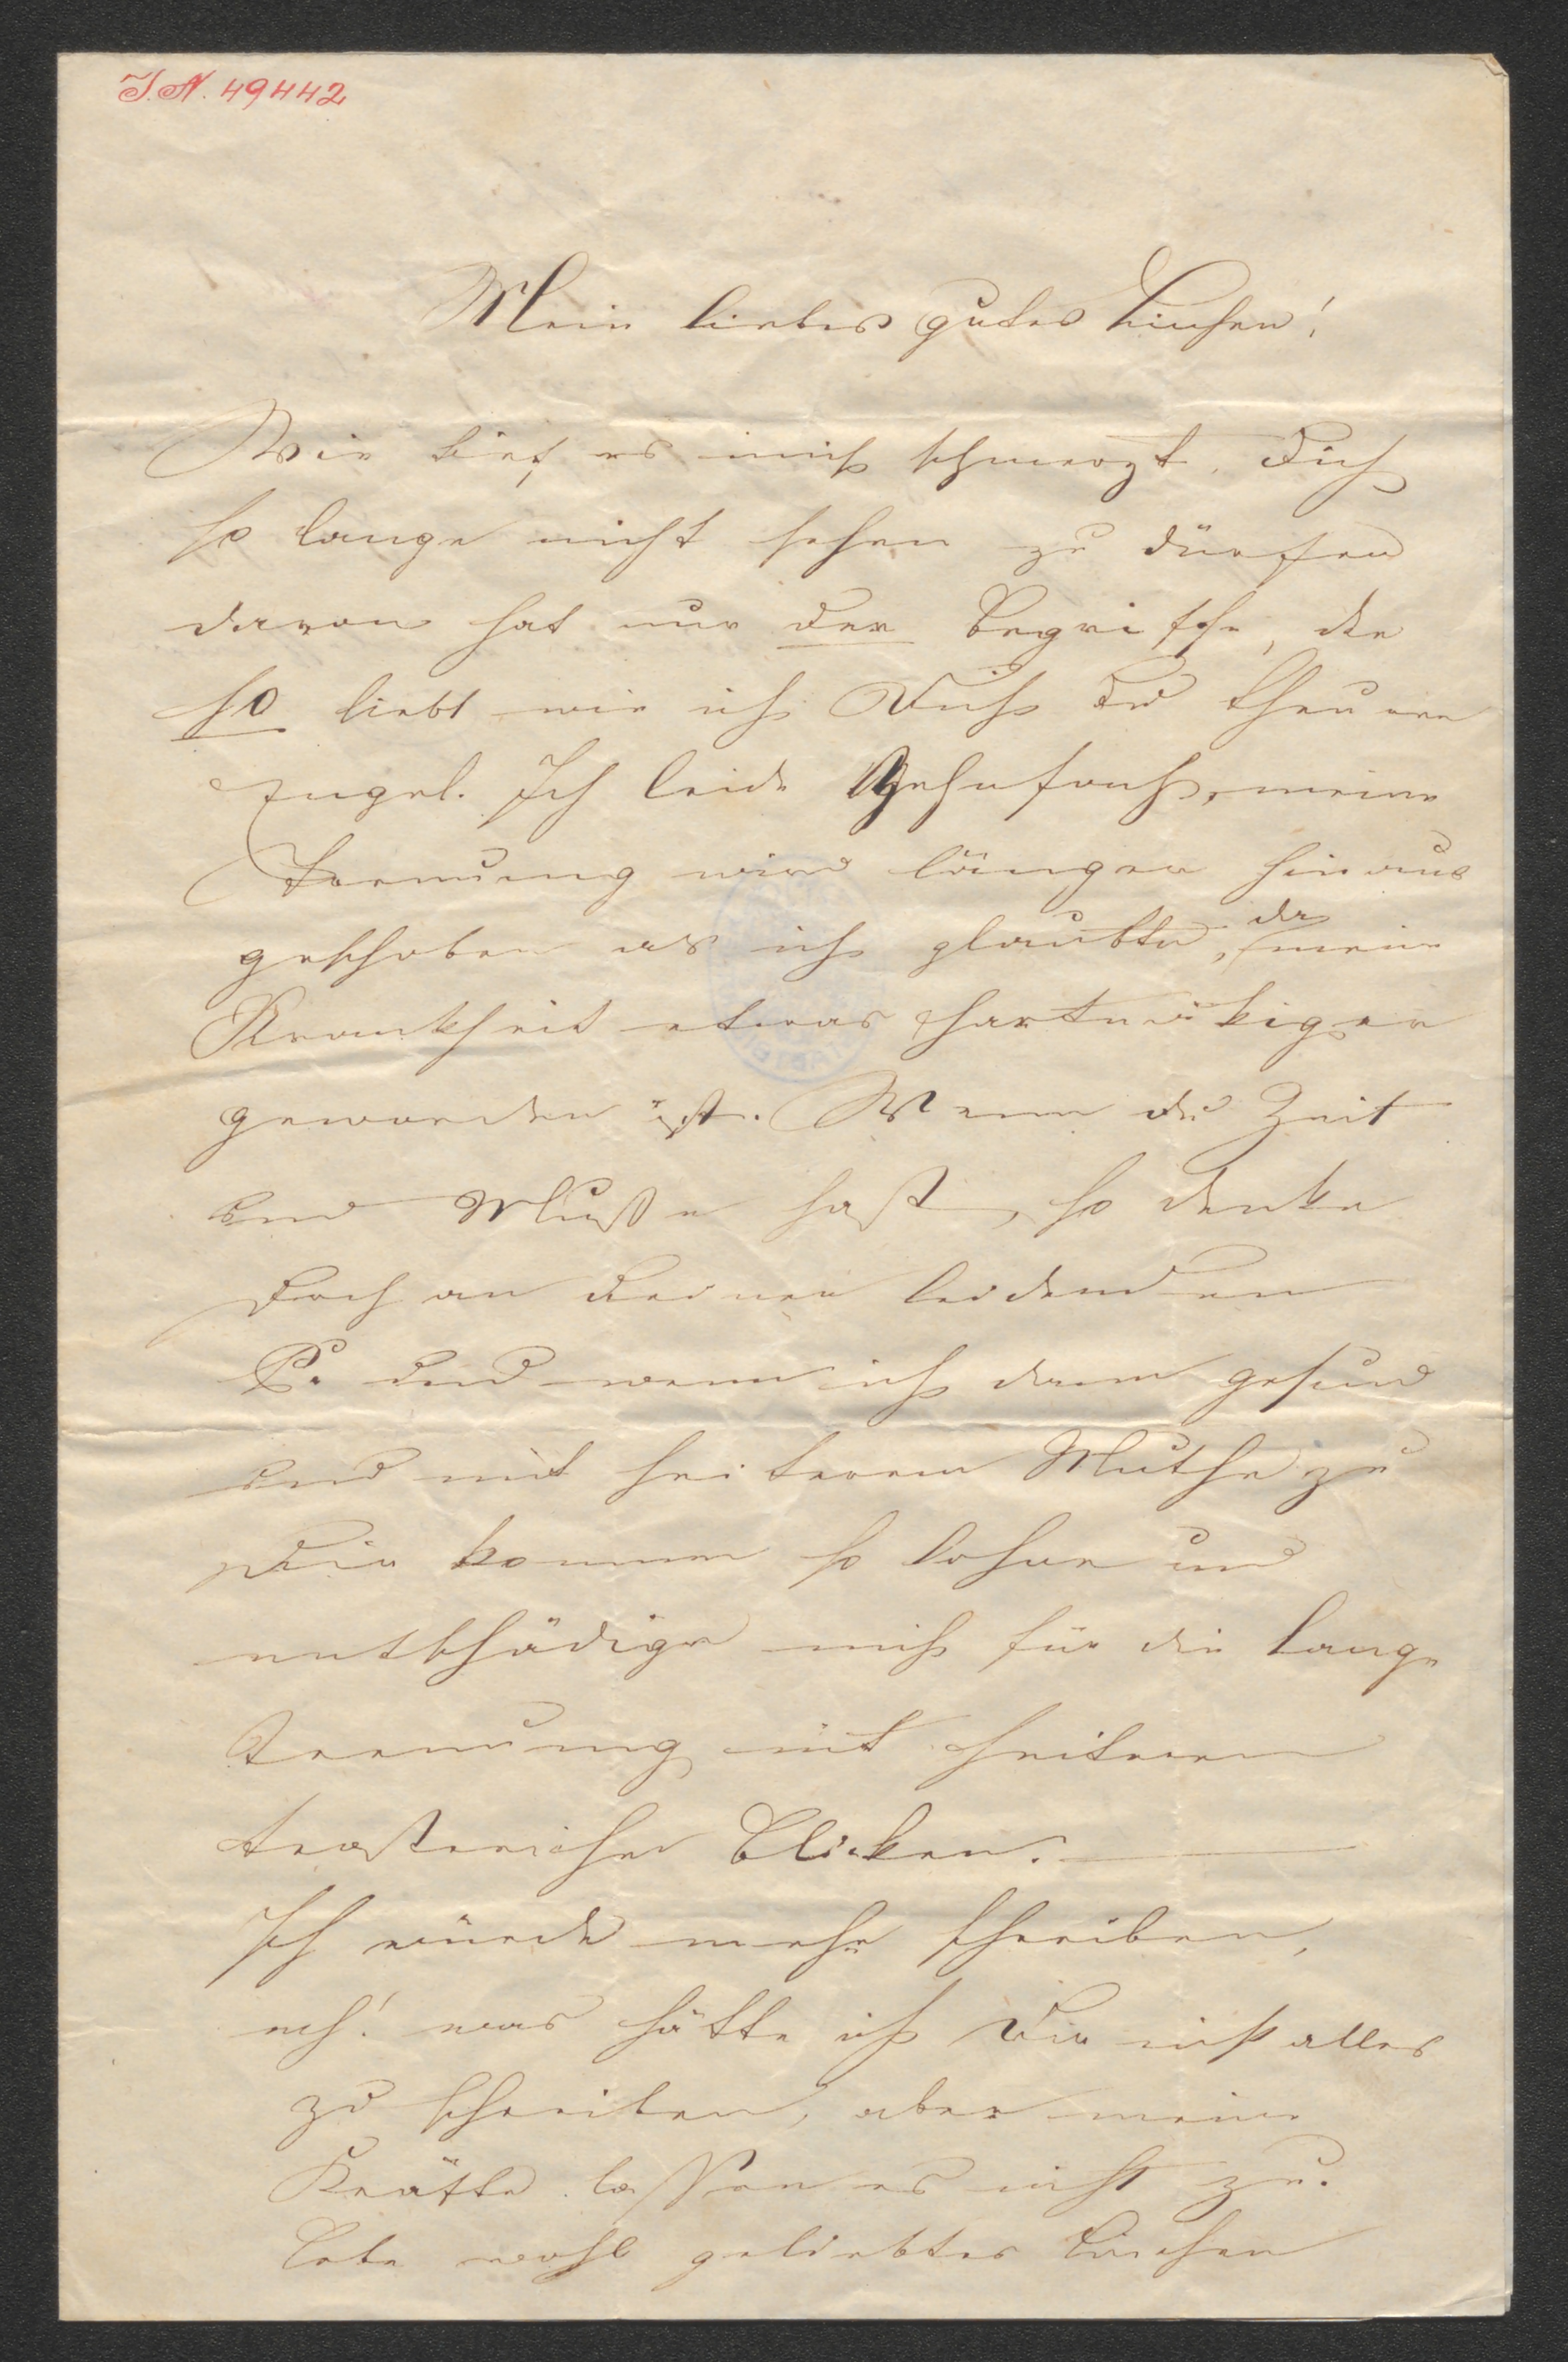 J.N. 49442
Mein liebes gutes Linchen!
Wie tief es mich schmerzt, Dich
so lange nicht sehen zu dürfen
davon hat nur der Begriffe, der
so liebt wie ich Dich Du theurer
Engel. Ich leide zehnfach, meine
Trennung wird länger hinaus
geschoben als ich glaubte, da meine
Krankheit etwas hartnäkiger
geworden ist. Wenn du Zeit
und Muße hast, so denke
doch an Deinen leidenden
P. und wenn ich dann gesund
und mit heiterem Muthe zu
Dir komme so lohne und
entschädige mich für die lange
Trennung mit heiteren
trostreichen Blicken.
Ich würde mehr schreiben,
ach! was hätte ich Dir nicht alles
zu schreiben, aber meine
Kräfte lassen es nicht zu.
Lebe wohl geliebtes Linchen